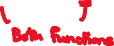 Both Functions